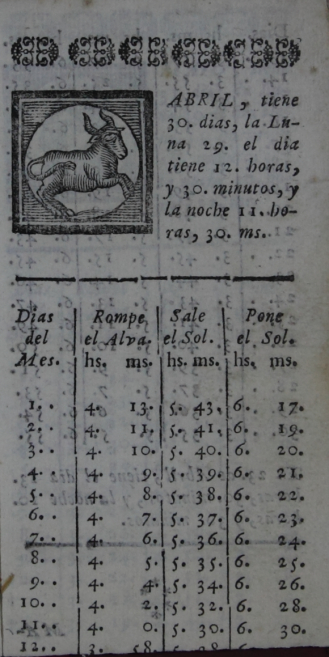 ABRIL, tiene
30. dias, la Lu-
na 29. el dia
tiene 12. horas,
y 30. minutos, y
la noche 11. ho-
ras, 30. ms.
Dias Rompe Sale Pone
del el Alva. el Sol. el Sol.
Mes. hs. ms. hs. ms. hs. ms.
1. 4. 13. 5. 43. 6. 17.
2. 4. 11. 5. 41. 6. 19.
3. 4. 10. 5. 40. 6. 20.
4. 4. 9. 5. 39. 6. 21.
5. 4. 8. 5. 38. 6. 22.
6. 4. 7. 5. 37. 6. 23.
7. 4. 6. 5. 36. 6. 24.
8. 4. 5. 5. 35. 6. 25.
9. 4. 4. 5. 34. 6. 26.
10. 4. 2. 5. 32. 6. 28.
11. 4. 0. 5. 30. 6. 30.
12. 3. 58.